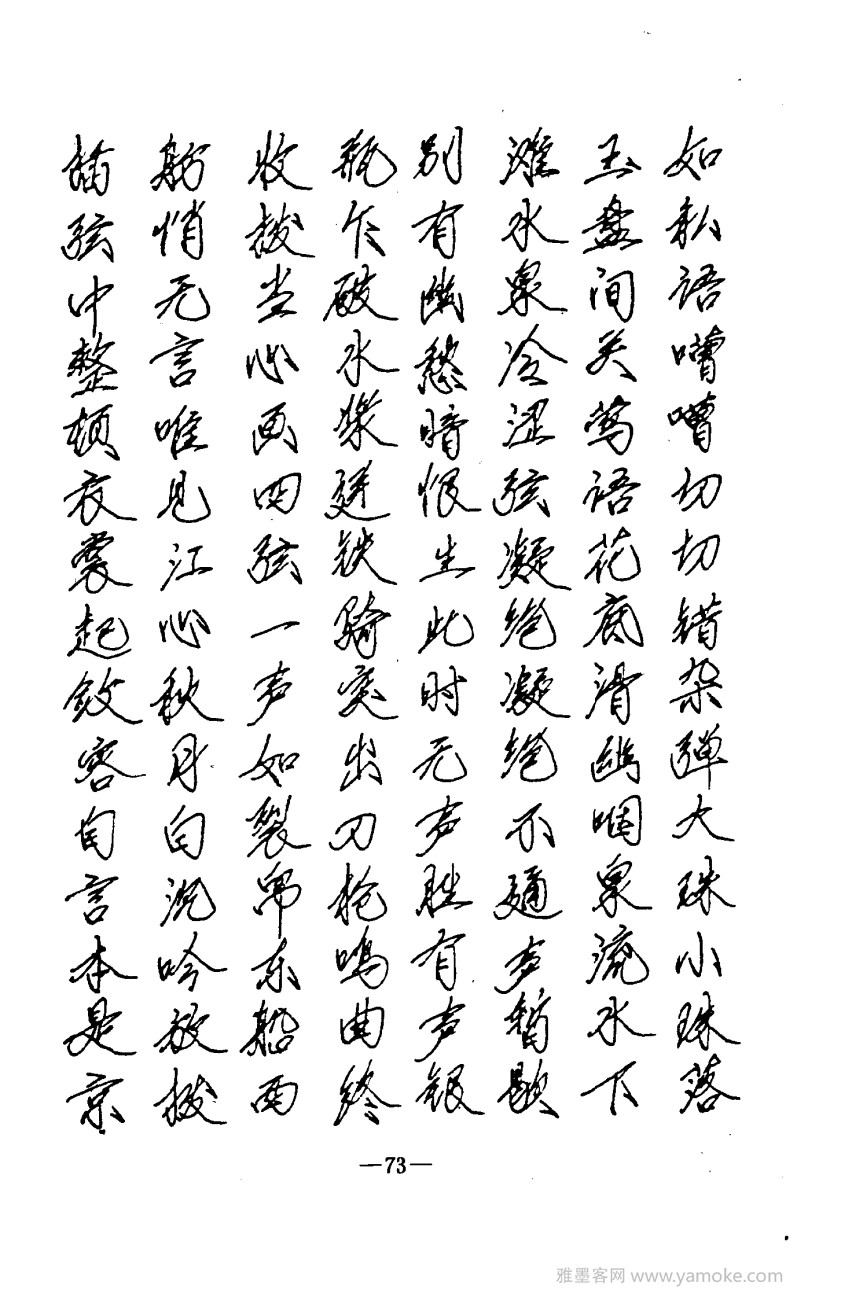 如私语嘈嘈切切错杂弹大珠小珠落
玉盘间关莺语花底滑幽咽泉流水下
滩水泉冷涩弦凝绝凝绝不通声暂歇
别有幽愁暗恨生此时无声胜有声银
瓶乍破水浆迸铁骑突出刀枪鸣曲终
收拨当心画四弦一声如裂帛东船西
舫悄无言唯见江心秋月白沉吟放拨
插弦中整顿衣裳起敛容自言本是京
—73—
雅墨客网 www.yamoke.com